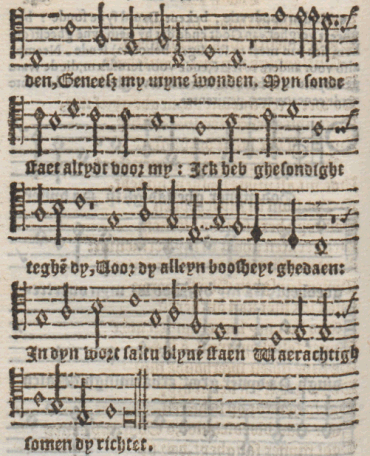 den, Geneesz my myne wonden. Myn sonde
staet altydt voor my: Ick heb ghesondight
teghē dy, Voor dy alleyn boosheyt ghedaen:
In dyn wort saltu blyuē staen Waerachtigh
somen dy richtet.